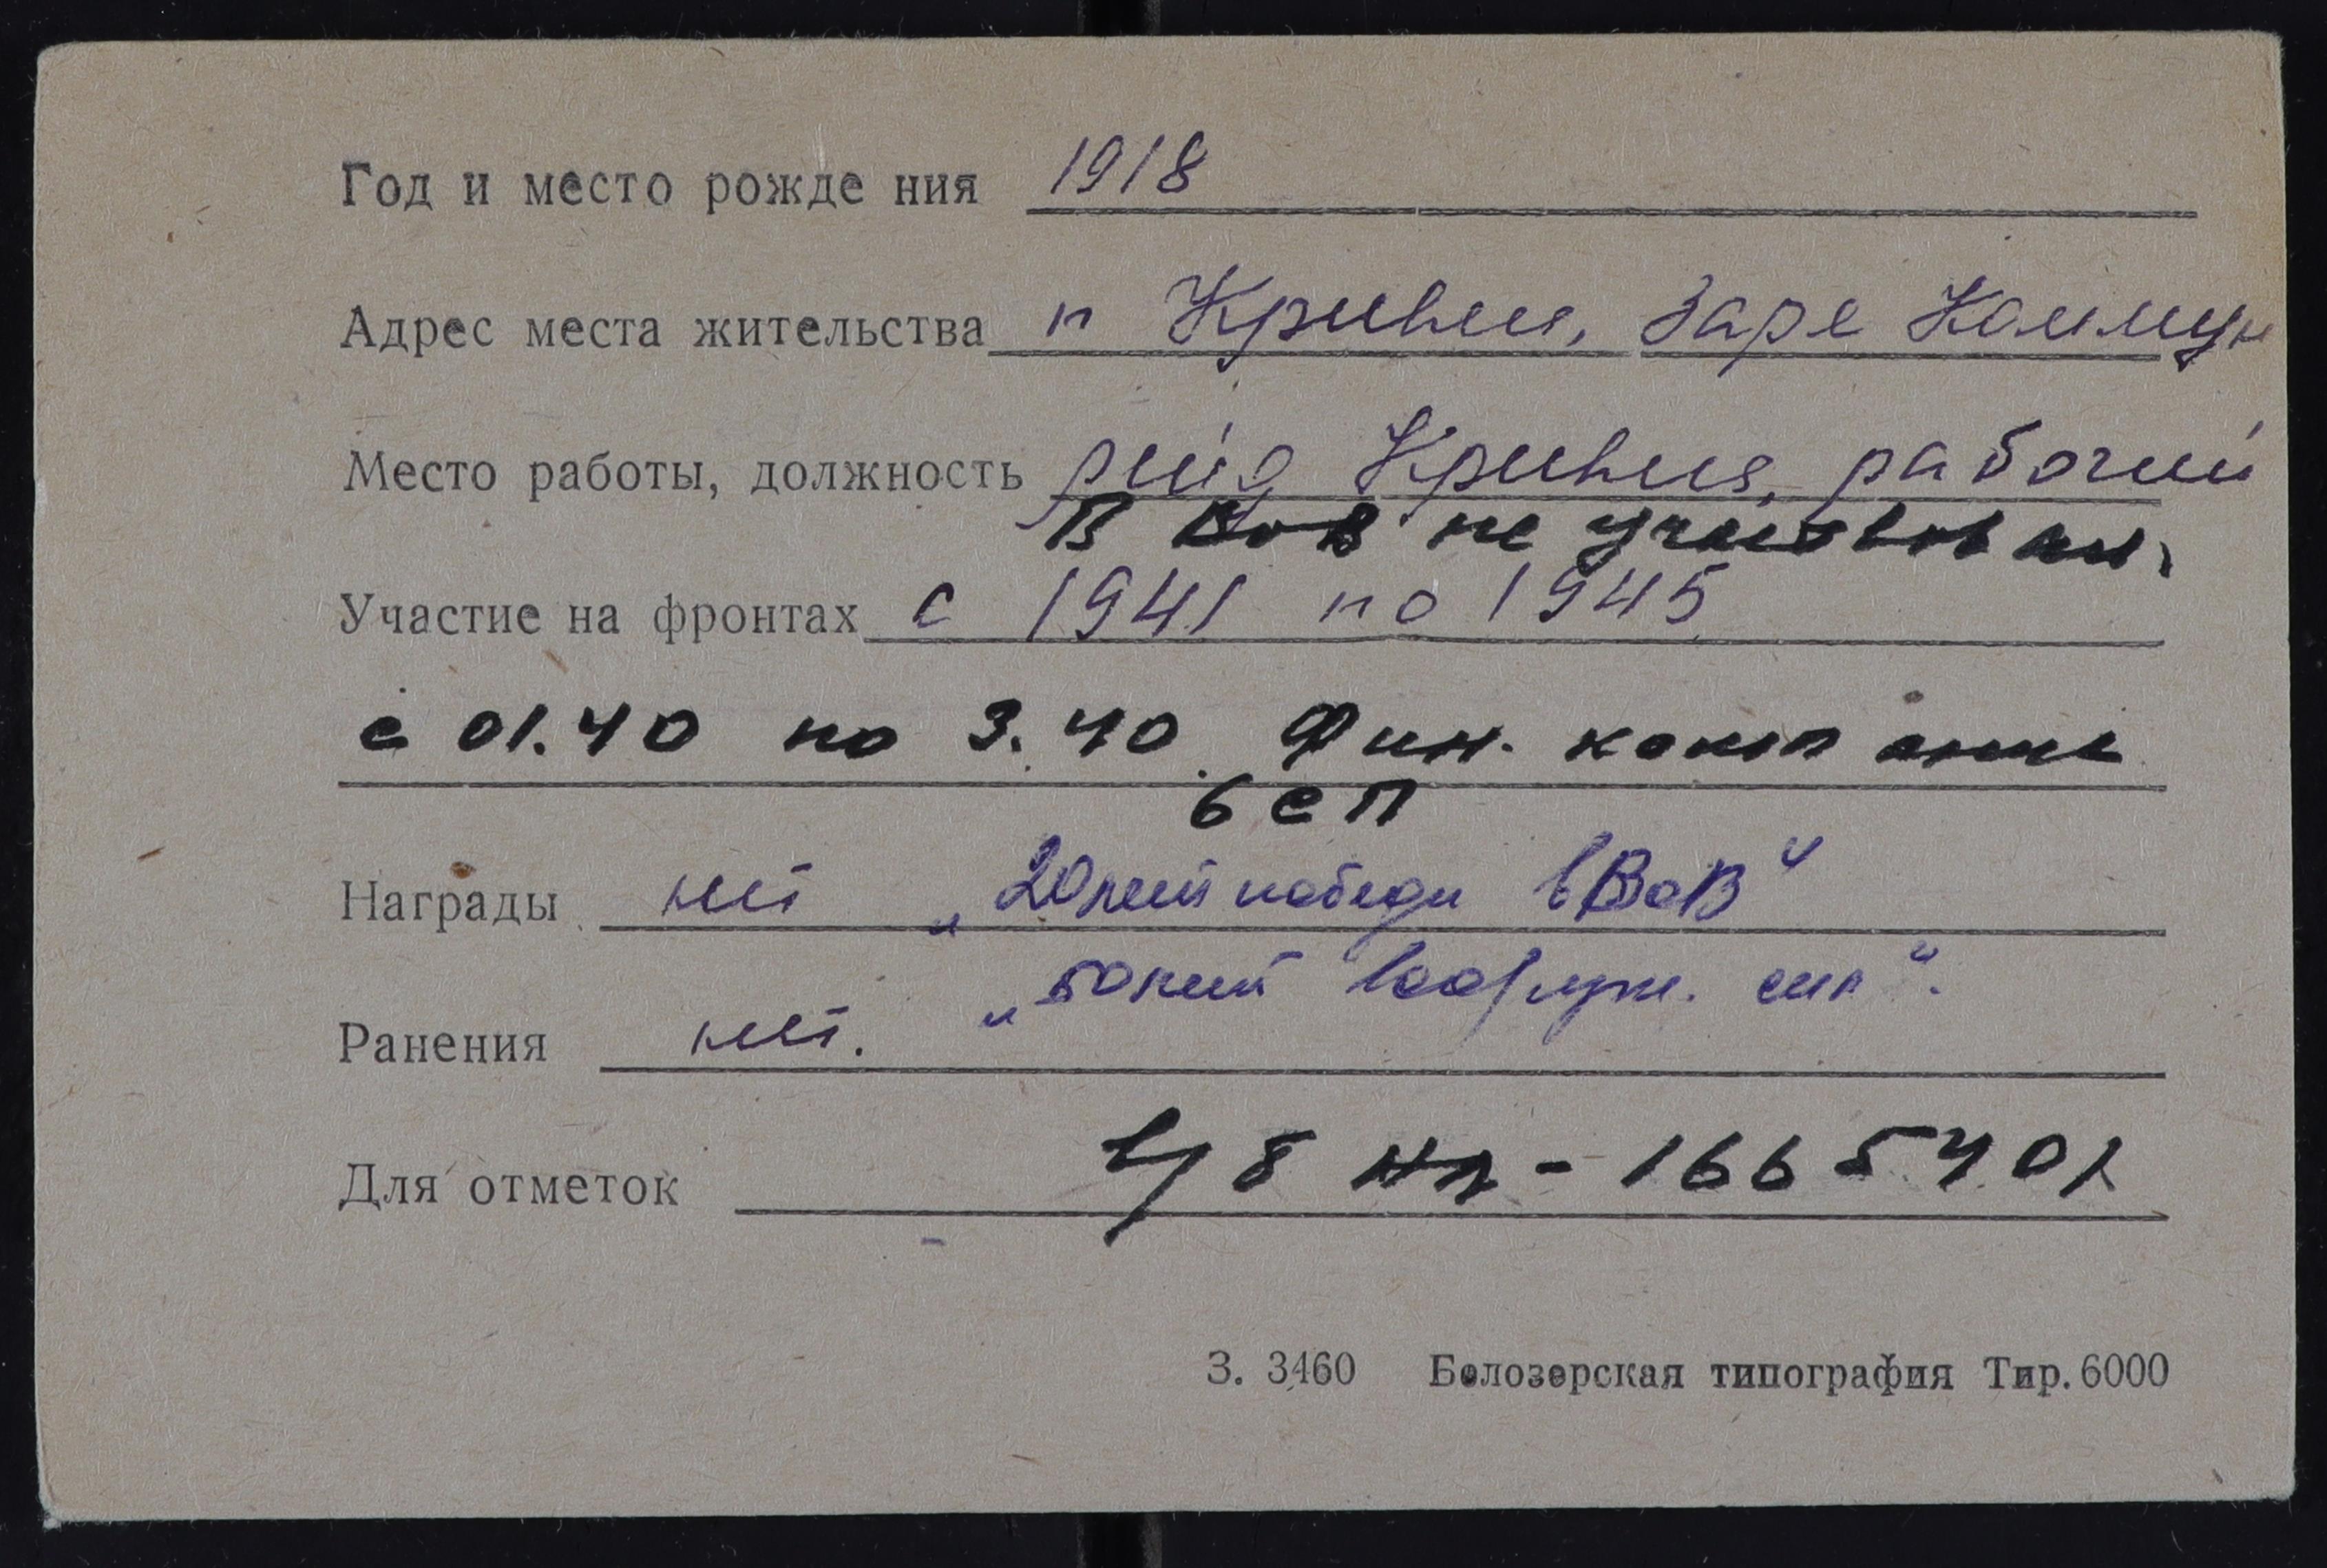 Год и место рожде ния 1918
Адрес места жительства п Кривец, Заре Коммун
Место работы, должность рейд Кривец, рабочий
В ВОВ не участвовал.
Участие на фронтах с 1941 по 1945
с 01.40 по 3.40 Фин. компания
6 СП
Награды нет „20 лет победы в ВОВ“
„50 лет вооруж. сил“.
Ранения нет.
Для отметок в/б НП - 1665401
З. 3460 Белозерская типография Тир. 6000